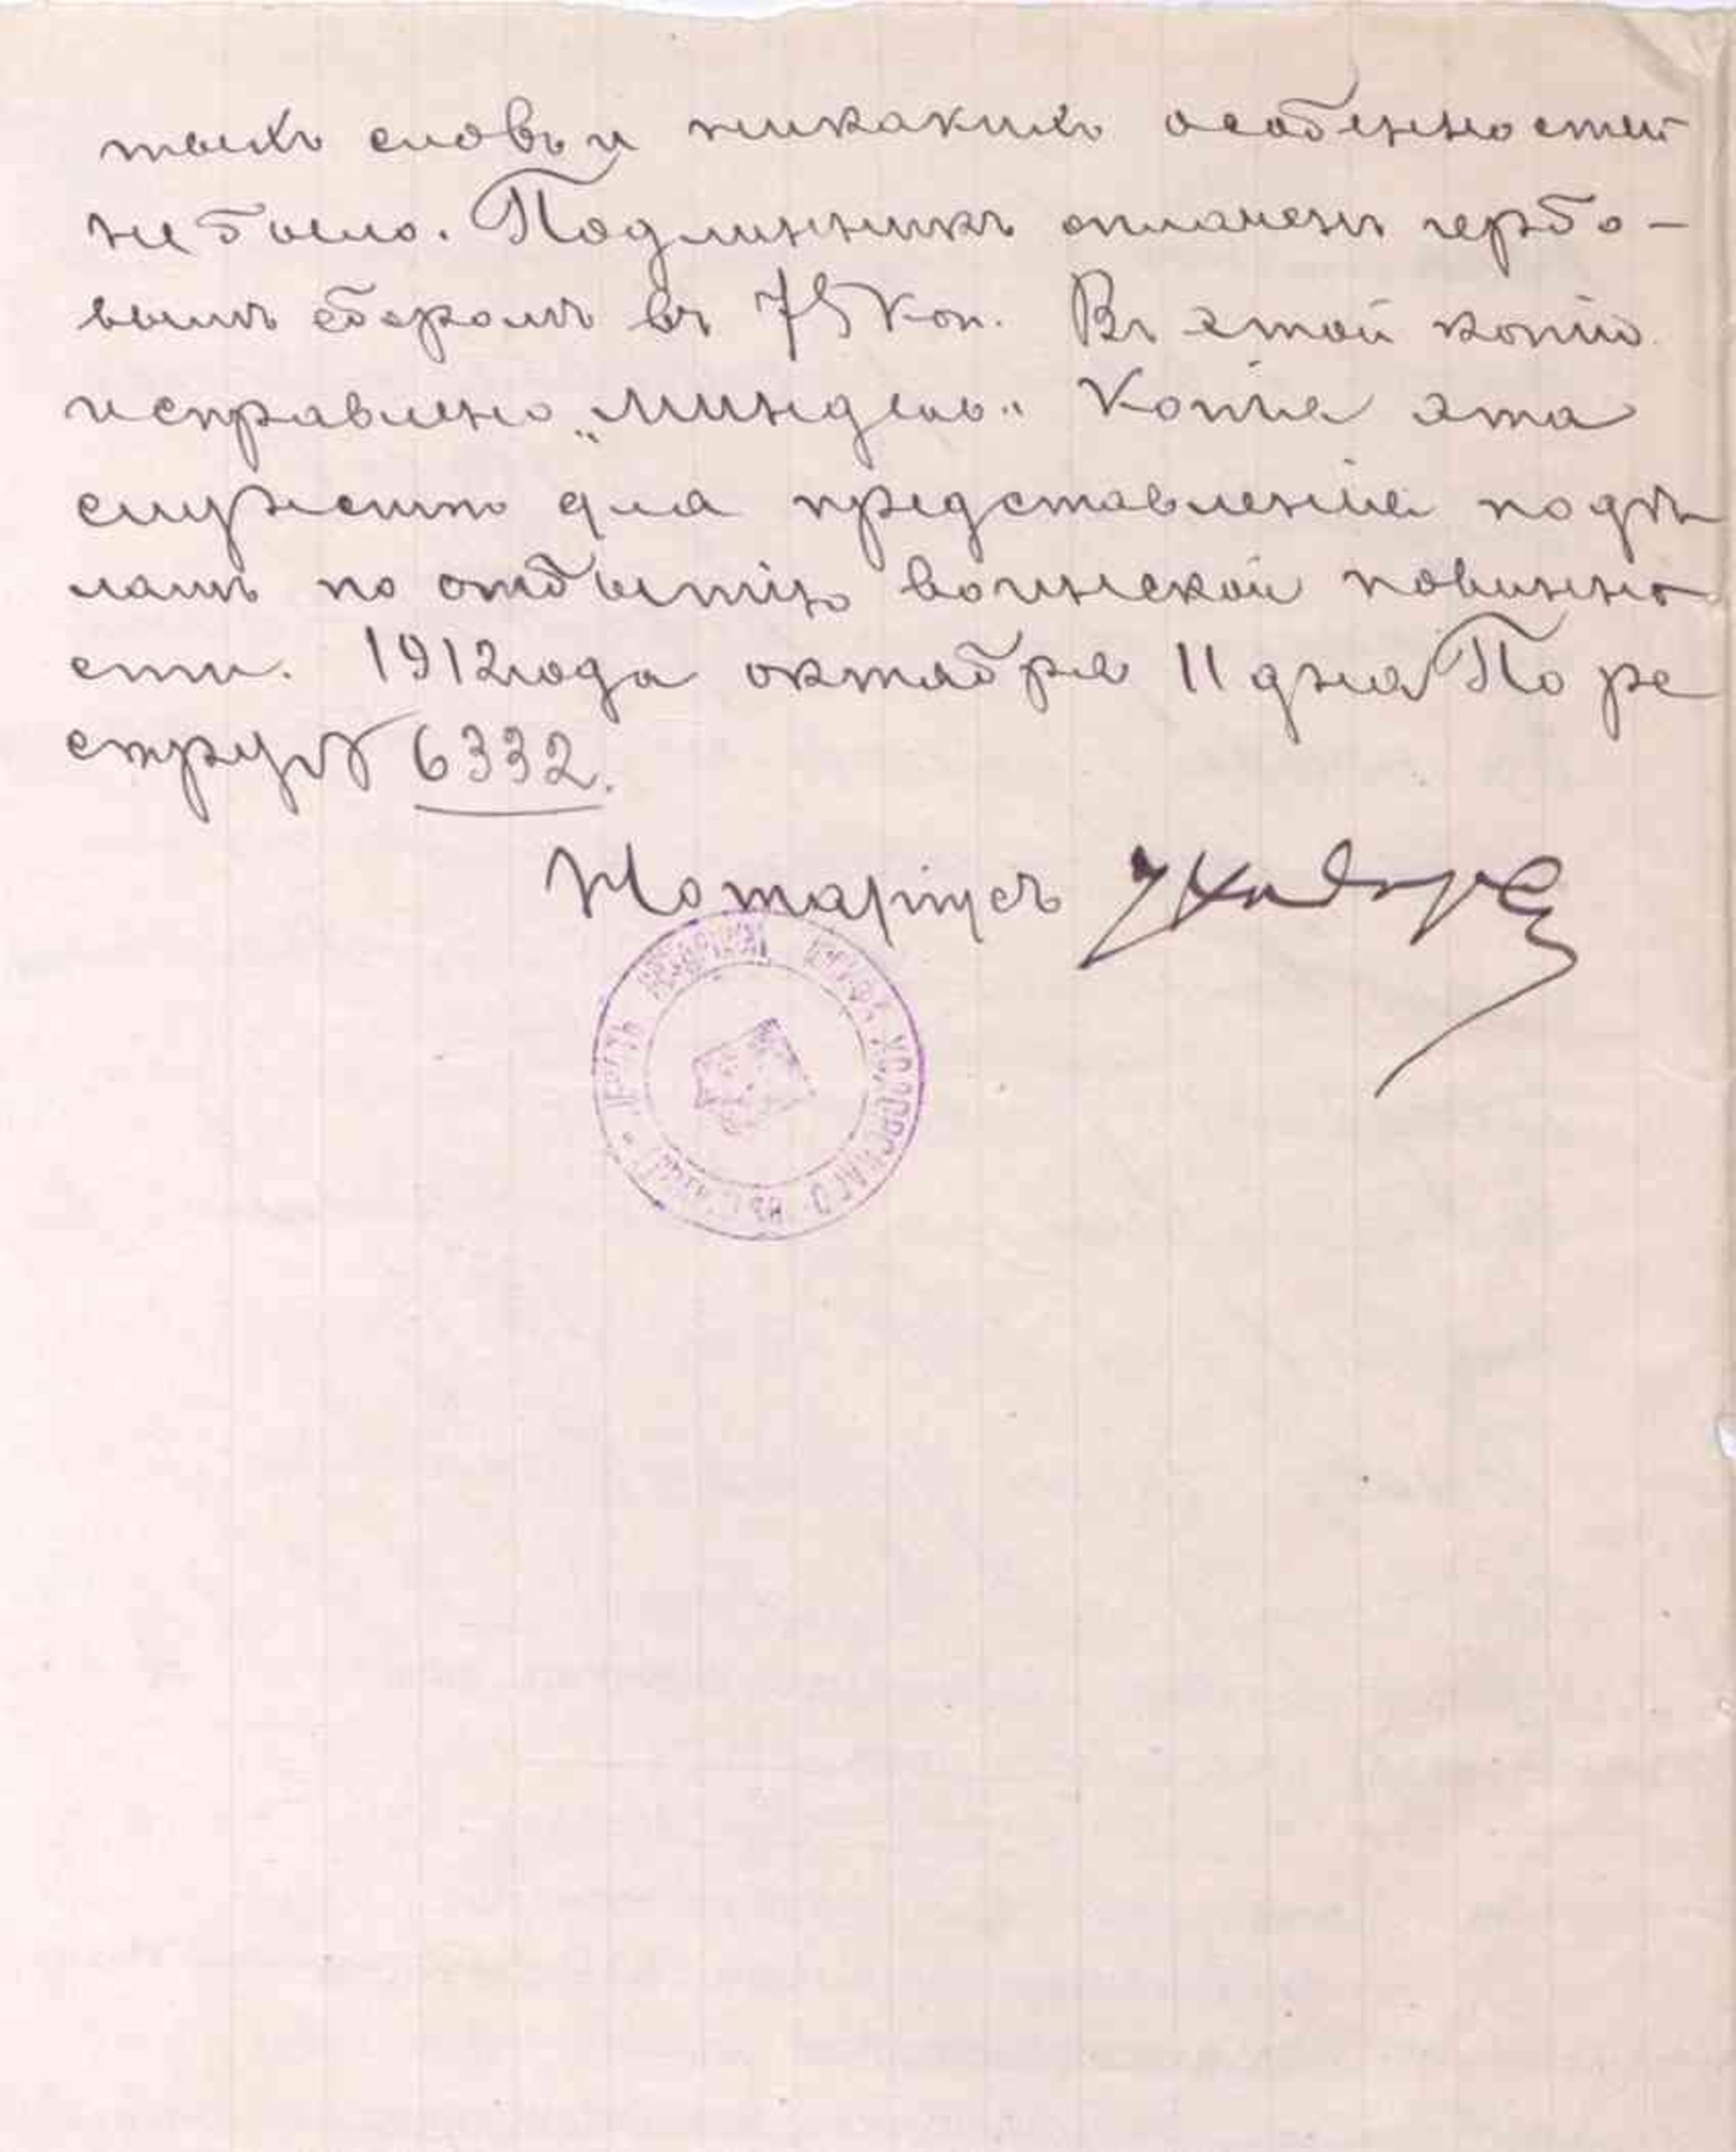 тыхъ словъ и никакихъ особенностей
не было. Подлинникъ оплаченъ гербо-
вымъ сборомъ въ 75 коп. Въ этой копіи
исправлено „Миндель“ Копія эта
служитъ для представленія по дѣ
ламъ по отбытію воинской повинно
сти. 1912 года октября 11 дня По ре
естру № 6332.
Нотаріусъ
ПЕЧАТЬ НОТАРІУСА